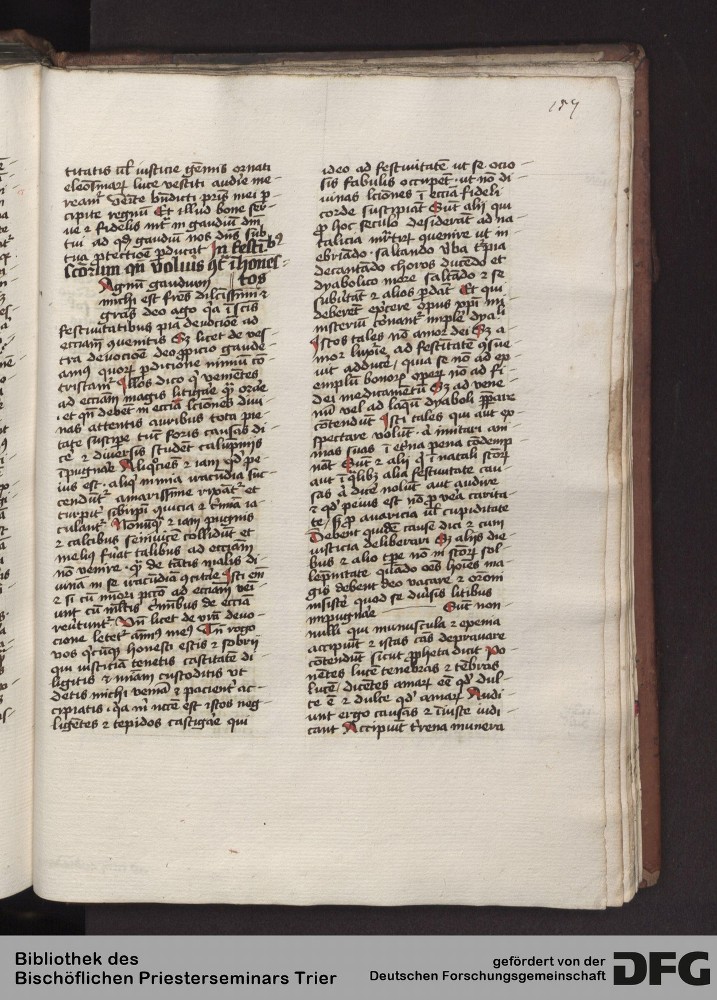 157
titatis uel iusticie gemmis ornati
eleosinarum luce vestiti audire me-
reamur Venite benedicti patris mei per-
cipite regnum Et illud bone ser-
ue et fidelis intra in gaudium domini
tui ad quod gaudium nos dominus sub
tua protectione perducat In festis
sanctorum qui volunt esse ihones-
tos
Magnum gaudium
michi est fratres dilectissimi et
gratias deo ago quia in sanctis
festiuitatibus pia deuocione ad
ecclesiam conuenitis Sed licet de ves-
tra deuocione deo propicio gaude-
amus quorum perdicione nimium con-
tristamur Illos dico qui venientes
ad ecclesiam magis litigare quam orare
et quando debent in ecclesia lectiones diui-
nas attentis auribus tota pie-
tate suscipere tunc foris causas di-
cere et diuersis student calumpniis
impugnare Aliquociens etiam quod pe-
ius est aliqui nimia iracundia suc-
cenduntur amarissime rixantur et
turpiter sibi ipsi conuicia et crimina ia-
culantur Nonnumquam etiam pugnis
et calcibus se inuicem collidunt et
melius fuerat talibus ad ecclesiam
non venire quam de tantis malis di-
uina in se iracundiam concitare Isti enim
et si cum minori peccato ad ecclesiam veni-
unt cum multis criminibus de ecclesia
reuertuntur Unde licet de vestra deuo-
cione letetur animus meus Tamen rogo
vos quicumque honesti estis et sobrii
qui iusticiam tenetis castitatem di-
ligitis et misericordiam custoditis ut
detis michi veniam et pacienter ac-
cipiatis quia michi necesse est istos neg-
ligentes et tepidos castigare qui
ideo ad festiuitatem ut se ocio-
sis fabulis occupent ut non di-
uinas lectiones in ecclesia fideli
corde suscipiant Sunt alii qui
pro hoc seculo desiderant ad na-
talicia martirum conuenire ut in
ebriando saltando verba turpia
decantando choros ducendo et
dyabolico more saltando et se
subuertant et alios perdant Et qui
deberent exercere opus christi mi-
nisterium conantur implere dyaboli
Istos tales non amor dei Sed a-
mor luxurie ad festiuitatem consue-
uit adducere quia se non ad ex-
emplum bonorum operum non ad fi-
dei medicamentum Sed ad vene-
num uel ad laqueum dyaboli preparare
contendunt Isti tales qui aut ex-
spectare volunt aut imitari ani-
mas suas in eterna pena condemp-
nant Sunt et alii qui in natali sanctorum
aut in qualibet alia festiuitate cau-
sas aut dicere nolunt aut audire
et quod peius est non pro vera carita-
te sed pro auaricia uel cupiditate
Debent quidem cause dici et cum
iusticia deliberari Sed aliis die-
bus et alio tempore non in sanctorum sol-
lempnitate quando omnes homines ma-
gis debent deo vacare et oracioni
insistere quod se diuersis litibus
impugnare Sunt non
nulli qui munuscula et exenia
accipiunt et istas causas deprauare
contendunt sicut propheta dicit Po-
nentes lucem tenebras et tenebras
lucem dicentes amarum esse quod dul-
ce est et dulce quod amarum Audi-
unt ergo causas et iniuste iudi-
cant Accipiunt terrena munera
Bibliothek des
Bischöflichen Priesterseminars Trier
gefördert von der
Deutschen Forschungsgemeinschaft
DFG